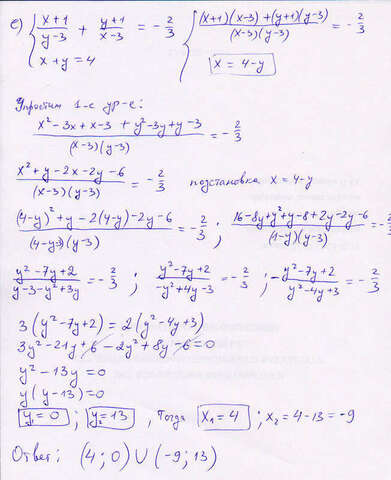 с) { (x+1)/(y-3) + (y+1)/(x-3) = -2/3 { ((x+1)(x-3)+(y+1)(y-3))/((x-3)(y-3)) = -2/3
x+y=4 x = 4-y
Упростим 1-е ур-е:
(x²-3x+x-3 + y²-3y+y-3)/((x-3)(y-3)) = -2/3
(x²+y-2x-2y-6)/((x-3)(y-3)) = -2/3 подстановка x = 4-y
((4-y)²+y-2(4-y)-2y-6)/((4-y-3)(y-3)) = -2/3 ; (16-8y+y²+y-8+2y-2y-6)/((1-y)(y-3)) = -2/3
(y²-7y+2)/(y-3-y²+3y) = -2/3 ; (y²-7y+2)/(-y²+4y-3) = -2/3 ; -(y²-7y+2)/(y²-4y+3) = -2/3
3(y²-7y+2) = 2(y²-4y+3)
3y²-21y+6-2y²+8y-6=0
y²-13y=0
y(y-13)=0
y₁=0 ; y₂=13 , тогда x₁=4 ; x₂=4-13=-9
Ответ: (4;0) ∪ (-9;13)